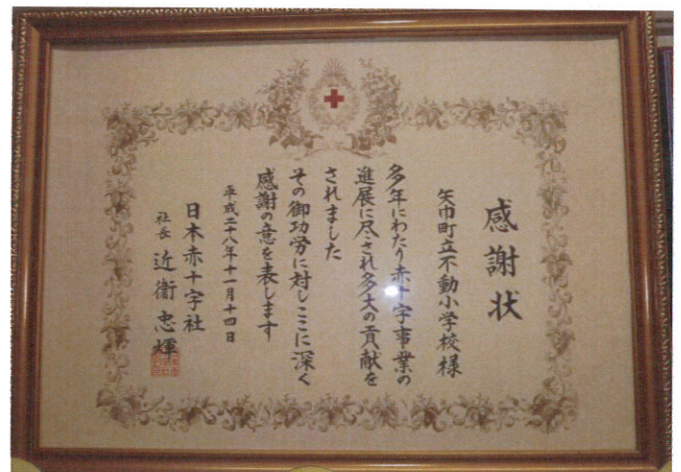 感謝状
矢巾町立不動小学校様
多年にわたり赤十字事業の
進展に尽され多大の貢献を
されました
その御功労に対しここに深く
感謝の意を表します
平成二十八年十一月十四日
日本赤十字社
社長 近衞忠煇